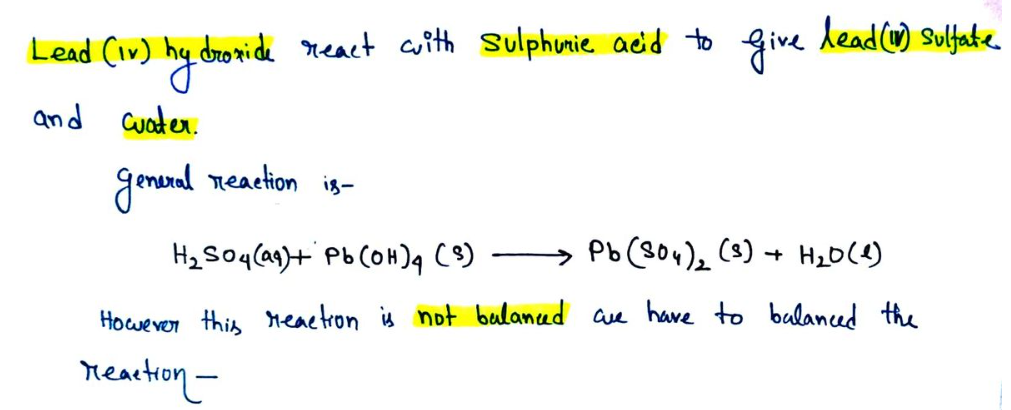 Lead (IV) hydroxide react with Sulphuric acid to give lead(IV) Sulfate
and water.
general reaction is-
H₂SO₄(aq) + Pb(OH)₄ (s) ⟶ Pb(SO₄)₂ (s) + H₂O(l)
However this reaction is not balanced we have to balanced the
reaction -